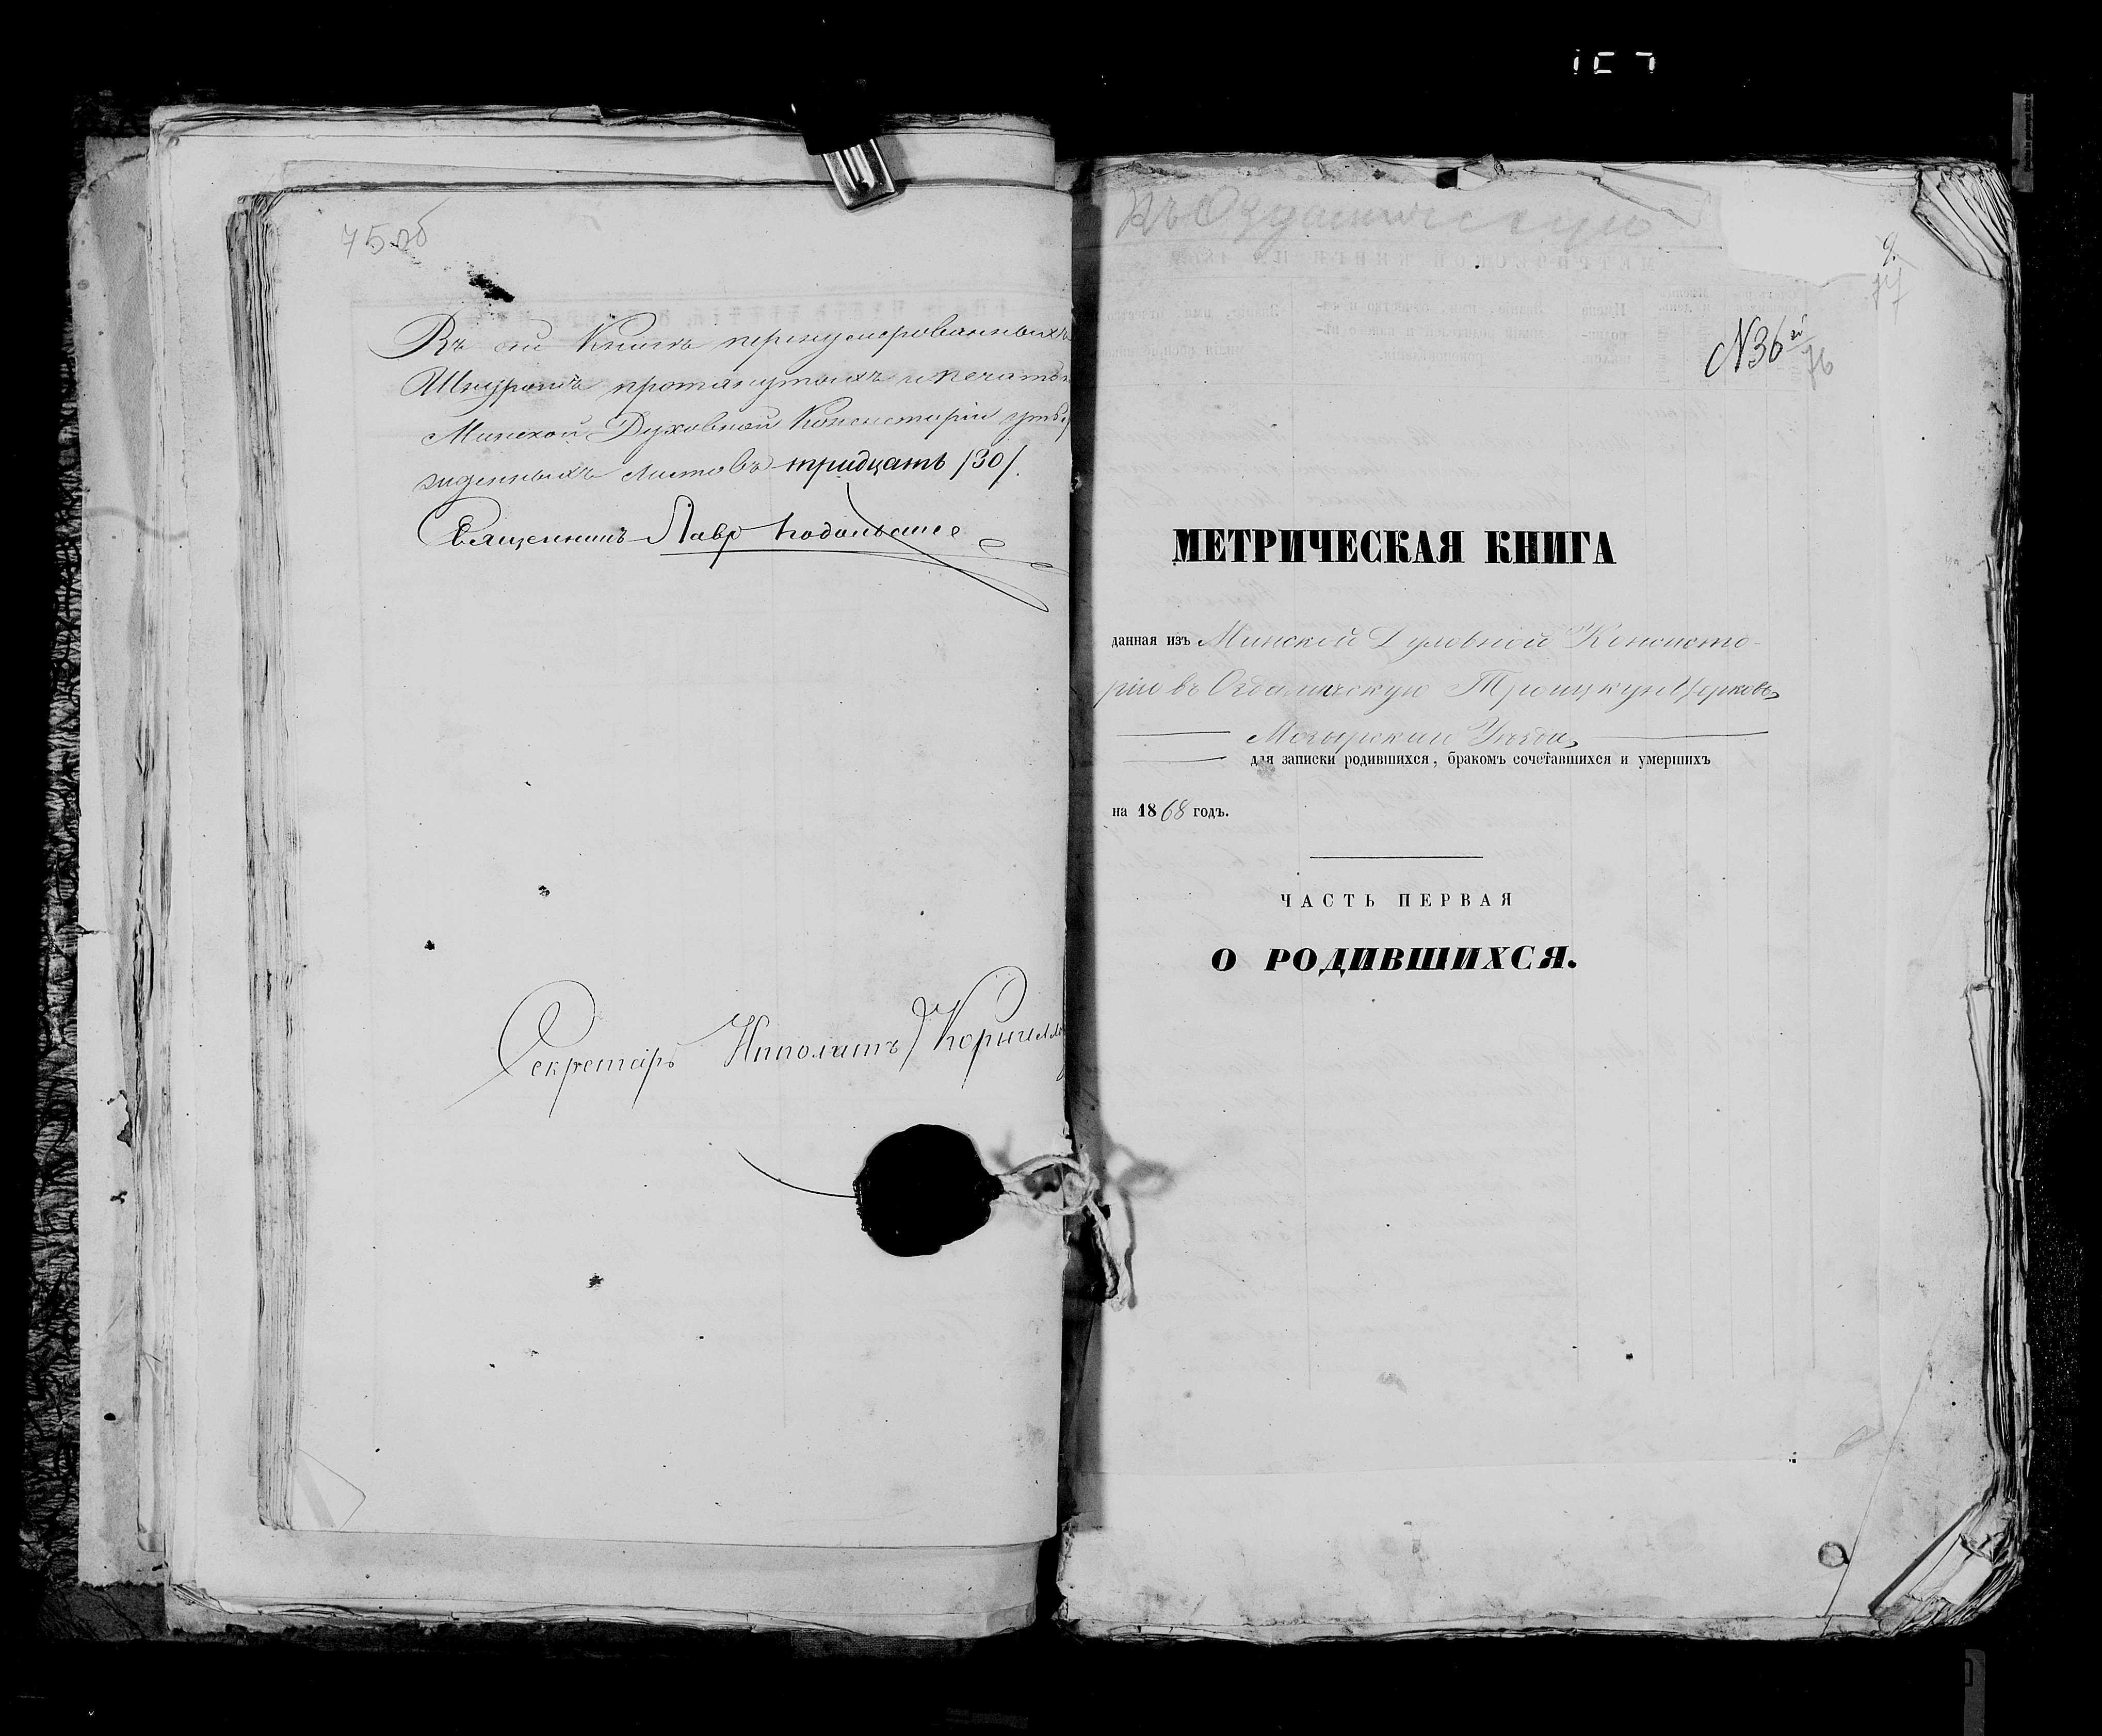 75 об
Въ сей Книгѣ перенумерованныхъ
Шнуромъ протянутыхъ и печатью
Минской Духовной Консисторіи утвер
жденныхъ листовъ тридцать /30/.
Священникъ Лавр
Секретарь Ипполитъ
9.
77
N36й
76
МЕТРИЧЕСКАЯ КНИГА
данная изъ Минской Духовной Консисто-
ріи въ Троицкую Церковь
Мозырскаго Уѣзда,
для записки родившихся, бракомъ сочетавшихся и умершихъ
на 1868 годъ.
ЧАСТЬ ПЕРВАЯ
О РОДИВШИХСЯ.